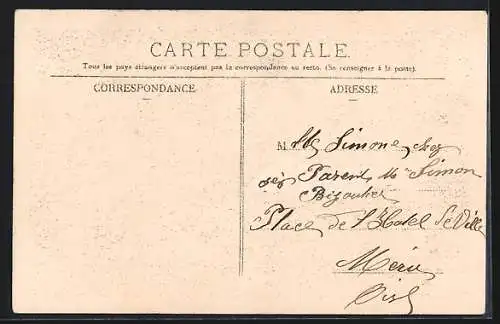 CARTE POSTALE
Tous les pays étrangers n'acceptent pas la correspondance au recto. (Se renseigner à la poste).
CORRESPONDANCE
ADRESSE
Mlle Simone, chez
ses Parents M Simon
Bijoutier
Place de l'Hotel de Ville
Méru
Oise